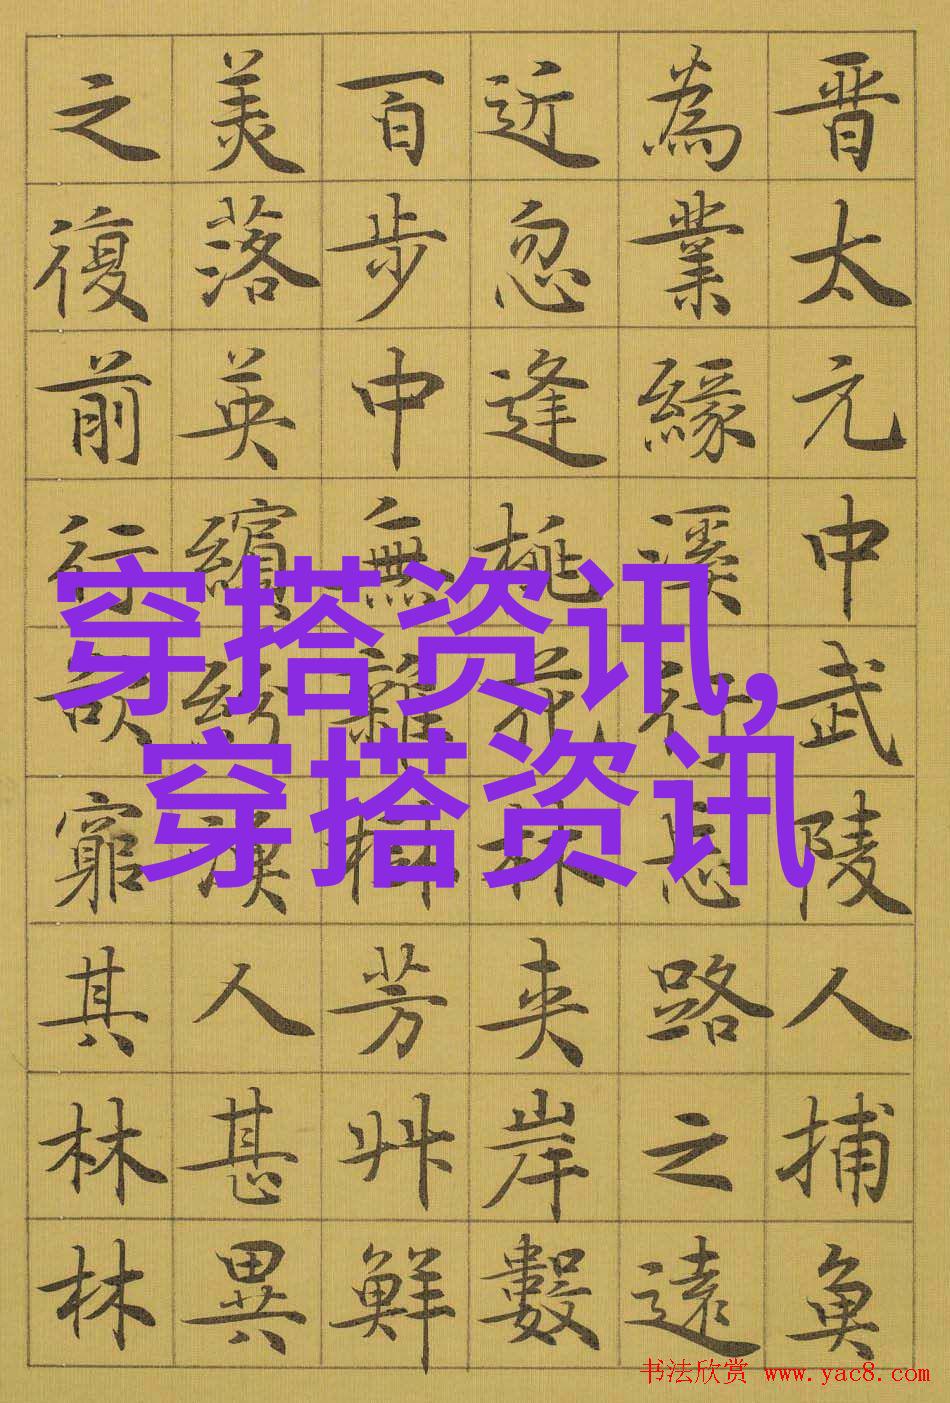 晋太元中武陵人捕魚
為業緣溪行忘路之遠
近忽逢桃花林夾岸數
百步中無雜樹芳艸鮮
美落英繽紛漁人甚異
之復前行欲窮其林林
穿搭资讯,
穿搭资讯
书法欣赏 www.yac8.com